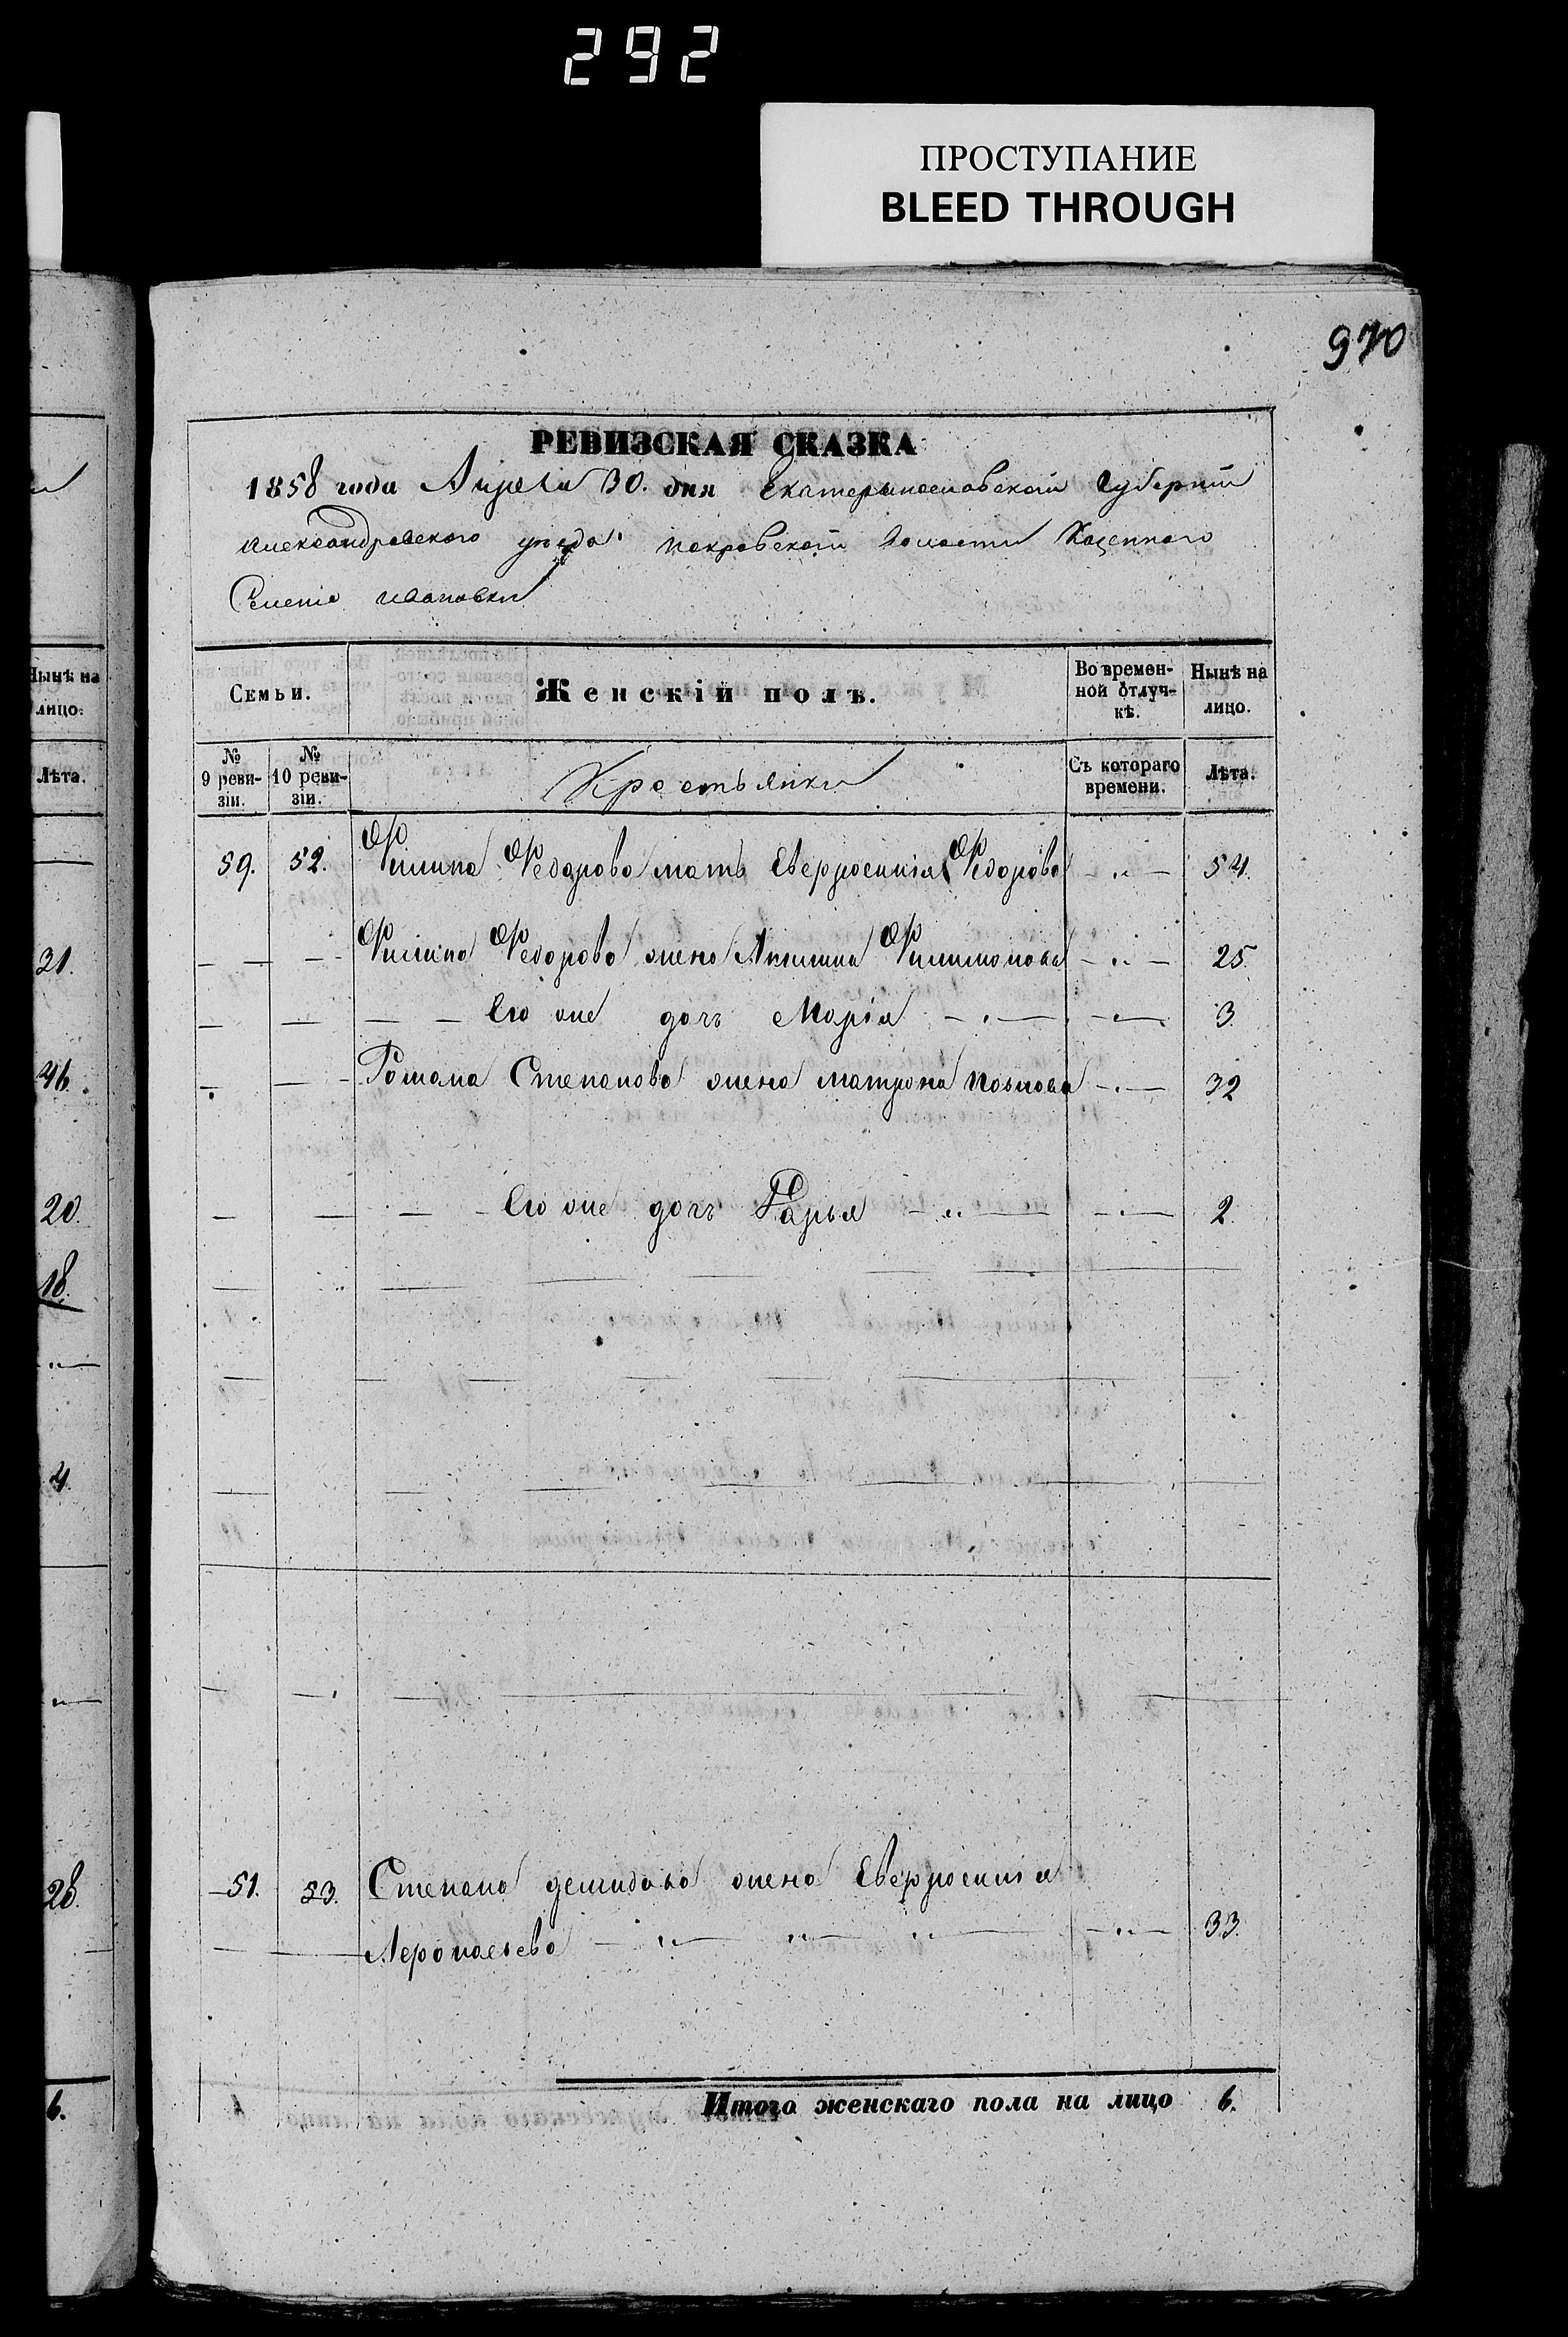 292
ПРОСТУПАНИЕ
BLEED THROUGH
970
РЕВИЗСКАЯ СКАЗКА
1858 года Апреля 30. дня Екатеринославской Губернии
Александровского уезда покровской волости Казенного
Селения ивановки
Нынѣ на лицо:
Лѣта.
31.
46.
20.
18.
4.
28.
6.
Семьи. Женскій полъ. Во временной отлучкѣ. Нынѣ на лицо.
№ 9 ревизіи. № 10 ревизіи. Крестьянки Съ котораго времени. Лѣта.
59. 52. Филипа Федорова мать Евфросинія Федорова 54.
Филипа Федорова жена Акилина Филимонова 25.
Его же дочь Марія 3
Романа Степанова жена матрона 32
Его же дочь Дарья 2.
51. 53. Степана демидова жена Евфросинія
33.
Итого женскаго пола на лицо 6.